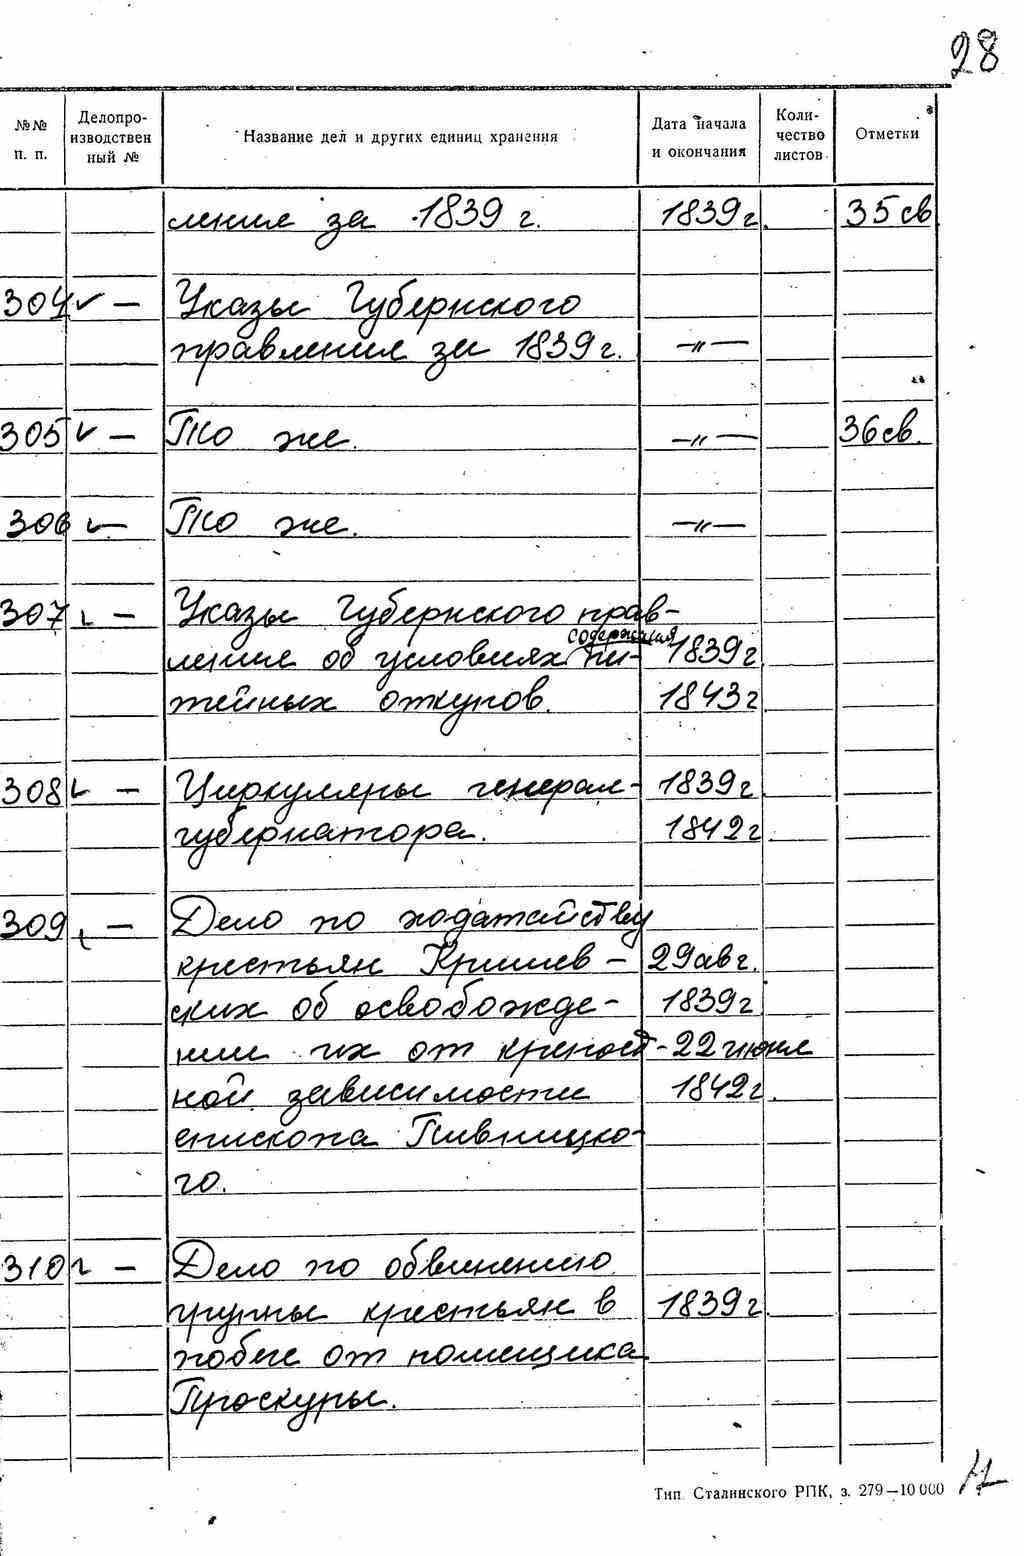 28
№№ п. п. Делопро-изводствен ный № Название дел и других единиц хранения Дата начала и окончания Коли-чество листов Отметки
ление за 1839 г. 1839 г. 35 св
304 ✓ — Указы Губернского
правления за 1839 г. —"—
305 ✓ — То же. —"— 36 св.
306 ✓ — То же. —"—
307 ✓ — Указы Губернского прав-
содержания
ление об условиях пи- 1839 г
тейных откупов. 1843 г
308 ✓ — Циркуляры генерал- 1839 г
губернатора. 1842 г
309 ✓ — Дело по ходатайству
крестьян Кришев- 29 авг.
ских об освобожде- 1839 г
нии их от крепост- 22 июля
ной зависимости 1842 г.
епископа Пивницко-
го.
310 ✓ — Дело по обвинению
группы крестьян в 1839 г.
побеге от помещика
Проскуры.
Тип. Сталинского РПК, з. 279—10 000